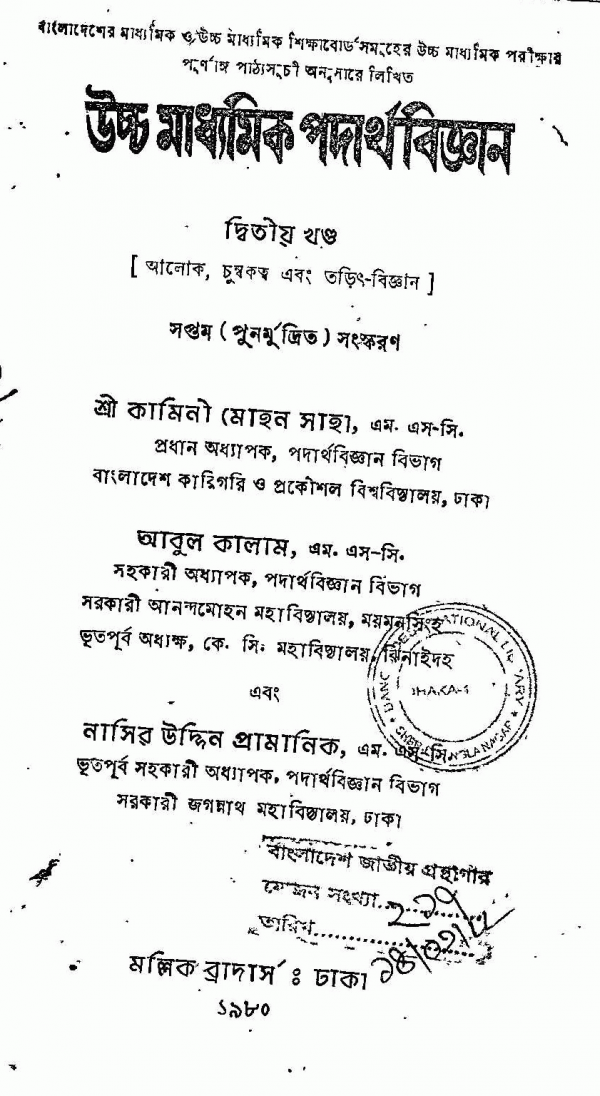 বাংলাদেশের মাধ্যমিক ও উচ্চ মাধ্যমিক শিক্ষাবোর্ডসমূহের উচ্চ মাধ্যমিক পরীক্ষার
পূর্ণাঙ্গ পাঠ্যসূচী অনুসারে লিখিত
উচ্চ মাধ্যমিক পদার্থ বিজ্ঞান
দ্বিতীয় খণ্ড
[ আলোক, চুম্বকত্ব এবং তড়িৎ-বিজ্ঞান ]
সপ্তম ( পুনর্মুদ্রিত ) সংস্করণ
শ্রী কামিনী মোহন সাহা, এম. এস-সি.
প্রধান অধ্যাপক, পদার্থবিজ্ঞান বিভাগ
বাংলাদেশ কারিগরি ও প্রকৌশল বিশ্ববিদ্যালয়, ঢাকা
আবুল কালাম, এম. এস-সি.
সহকারী অধ্যাপক, পদার্থবিজ্ঞান বিভাগ
সরকারী আনন্দমোহন মহাবিদ্যালয়, ময়মনসিংহ
ভূতপূর্ব অধ্যক্ষ, কে. সি. মহাবিদ্যালয়, ঝিনাইদহ
এবং
নাসির উদ্দিন প্রামানিক, এম. এস-সি.
ভূতপূর্ব সহকারী অধ্যাপক, পদার্থবিজ্ঞান বিভাগ
সরকারী জগন্নাথ মহাবিদ্যালয়, ঢাকা
বাংলাদেশ জাতীয় গ্রন্থাগার
সংখ্যা
তারিখ
মল্লিক ব্রাদার্স : ঢাকা
১৯৮০